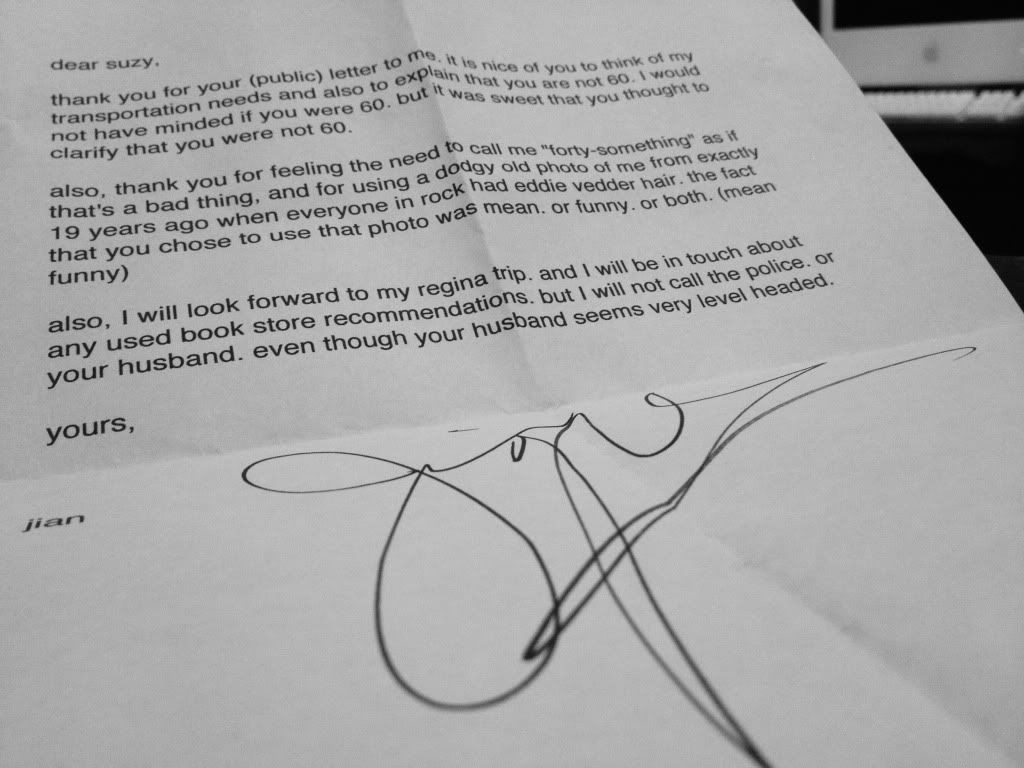 dear suzy.
thank you for your (public) letter to me. it is nice of you to think of my
transportation needs and also to explain that you are not 60. I would
not have minded if you were 60. but it was sweet that you thought to
clarify that you were not 60.
also, thank you for feeling the need to call me "forty-something" as if
that's a bad thing, and for using a dodgy old photo of me from exactly
19 years ago when everyone in rock had eddie vedder hair. the fact
that you chose to use that photo was mean. or funny. or both. (mean
funny)
also, I will look forward to my regina trip. and I will be in touch about
any used book store recommendations. but I will not call the police. or
your husband. even though your husband seems very level headed.
yours,
jian